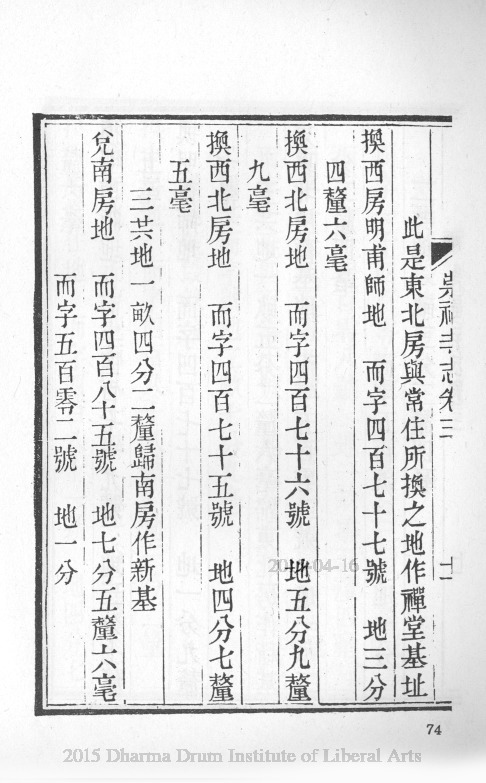 崇福寺志卷三 十二
此是東北房與常住所換之地作禪堂基址
換西房明甫師地 而字四百七十七號 地三分
四釐六毫
換西北房地 而字四百七十六號 地五分九釐
九毫
換西北房地 而字四百七十五號 地四分七釐
五毫
三共地一畝四分二釐歸南房作新基
兌南房地 而字四百八十五號 地七分五釐六毫
而字五百零二號 地一分
74
2015 Dharma Drum Institute of Liberal Arts